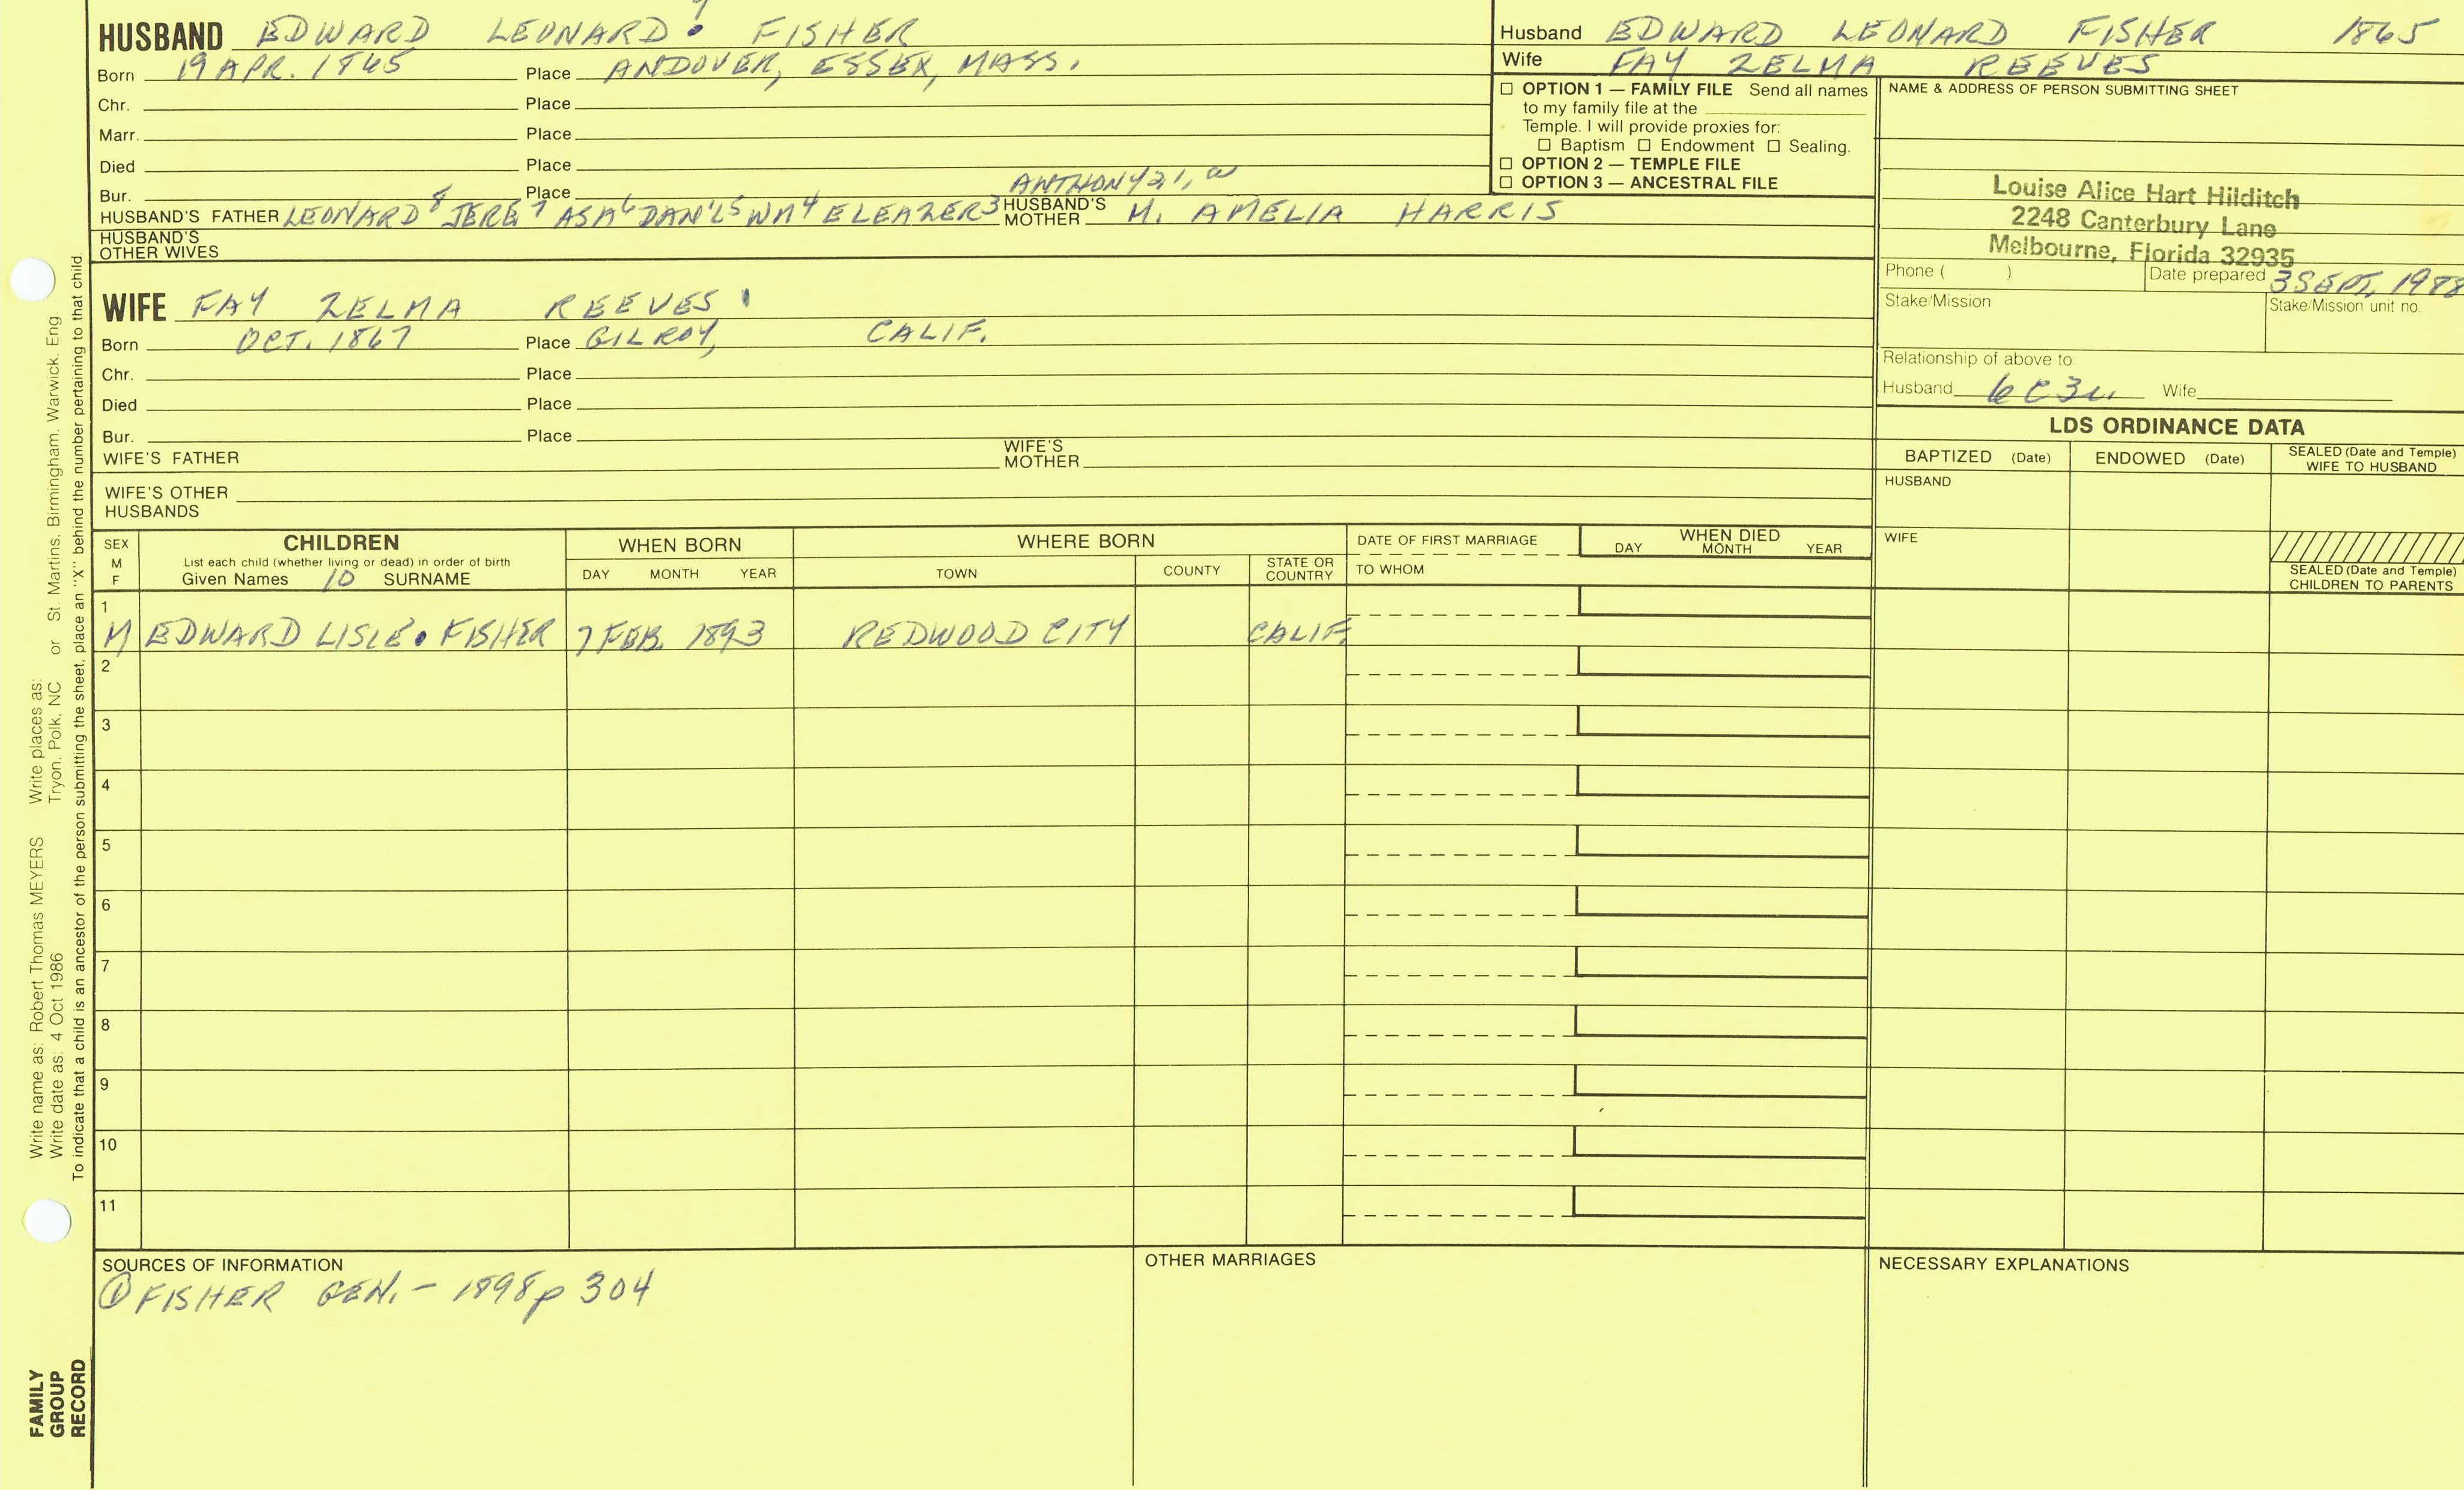 HUSBAND EDWARD LEONARD FISHER
Born 19 APR. 1865 Place ANDOVER, ESSEX, MASS.
Chr. Place
Marr. Place
Died Place
Bur. Place
ANTHONY 2,1,
HUSBAND'S FATHER LEONARD 8 JERE 7 ASA 6 DAN'L 5 WM 4 ELEAZER 3 HUSBAND'S MOTHER M. AMELIA HARRIS
HUSBAND'S OTHER WIVES
Husband EDWARD LEONARD FISHER 1865
Wife FAY ZELMA REEVES
☐ OPTION 1 — FAMILY FILE Send all names
to my family file at the
Temple. I will provide proxies for:
☐ Baptism ☐ Endowment ☐ Sealing.
☐ OPTION 2 — TEMPLE FILE
☐ OPTION 3 — ANCESTRAL FILE
NAME & ADDRESS OF PERSON SUBMITTING SHEET
Louise Alice Hart Hilditch
2248 Canterbury Lane
Melbourne, Florida 32935
Phone ( ) Date prepared 3 SEPT, 1988
Stake/Mission Stake/Mission unit no.
Relationship of above to:
Husband 6C3u. Wife
WIFE FAY ZELMA REEVES
Born OCT. 1867 Place GILROY, CALIF.
Chr. Place
Died Place
Bur. Place
WIFE'S FATHER WIFE'S MOTHER
WIFE'S OTHER
HUSBANDS
LDS ORDINANCE DATA
BAPTIZED (Date) ENDOWED (Date) SEALED (Date and Temple) WIFE TO HUSBAND
HUSBAND
WIFE
SEALED (Date and Temple)
CHILDREN TO PARENTS
SEX M F
CHILDREN
List each child (whether living or dead) in order of birth
Given Names 10 SURNAME
WHEN BORN
DAY MONTH YEAR
WHERE BORN
TOWN COUNTY STATE OR COUNTRY
DATE OF FIRST MARRIAGE
TO WHOM
WHEN DIED
DAY MONTH YEAR
1
M EDWARD LISLE FISHER 7 FEB. 1893 REDWOOD CITY CALIF.
2
3
4
5
6
7
8
9
10
11
SOURCES OF INFORMATION
① FISHER GEN. - 1898 p 304
OTHER MARRIAGES
NECESSARY EXPLANATIONS
Write name as: Robert Thomas MEYERS Write places as:
Write date as: 4 Oct 1986 Tryon, Polk, NC or St. Martins, Birmingham, Warwick, Eng
To indicate that a child is an ancestor of the person submitting the sheet, place an "X" behind the number pertaining to that child.
FAMILY
GROUP
RECORD